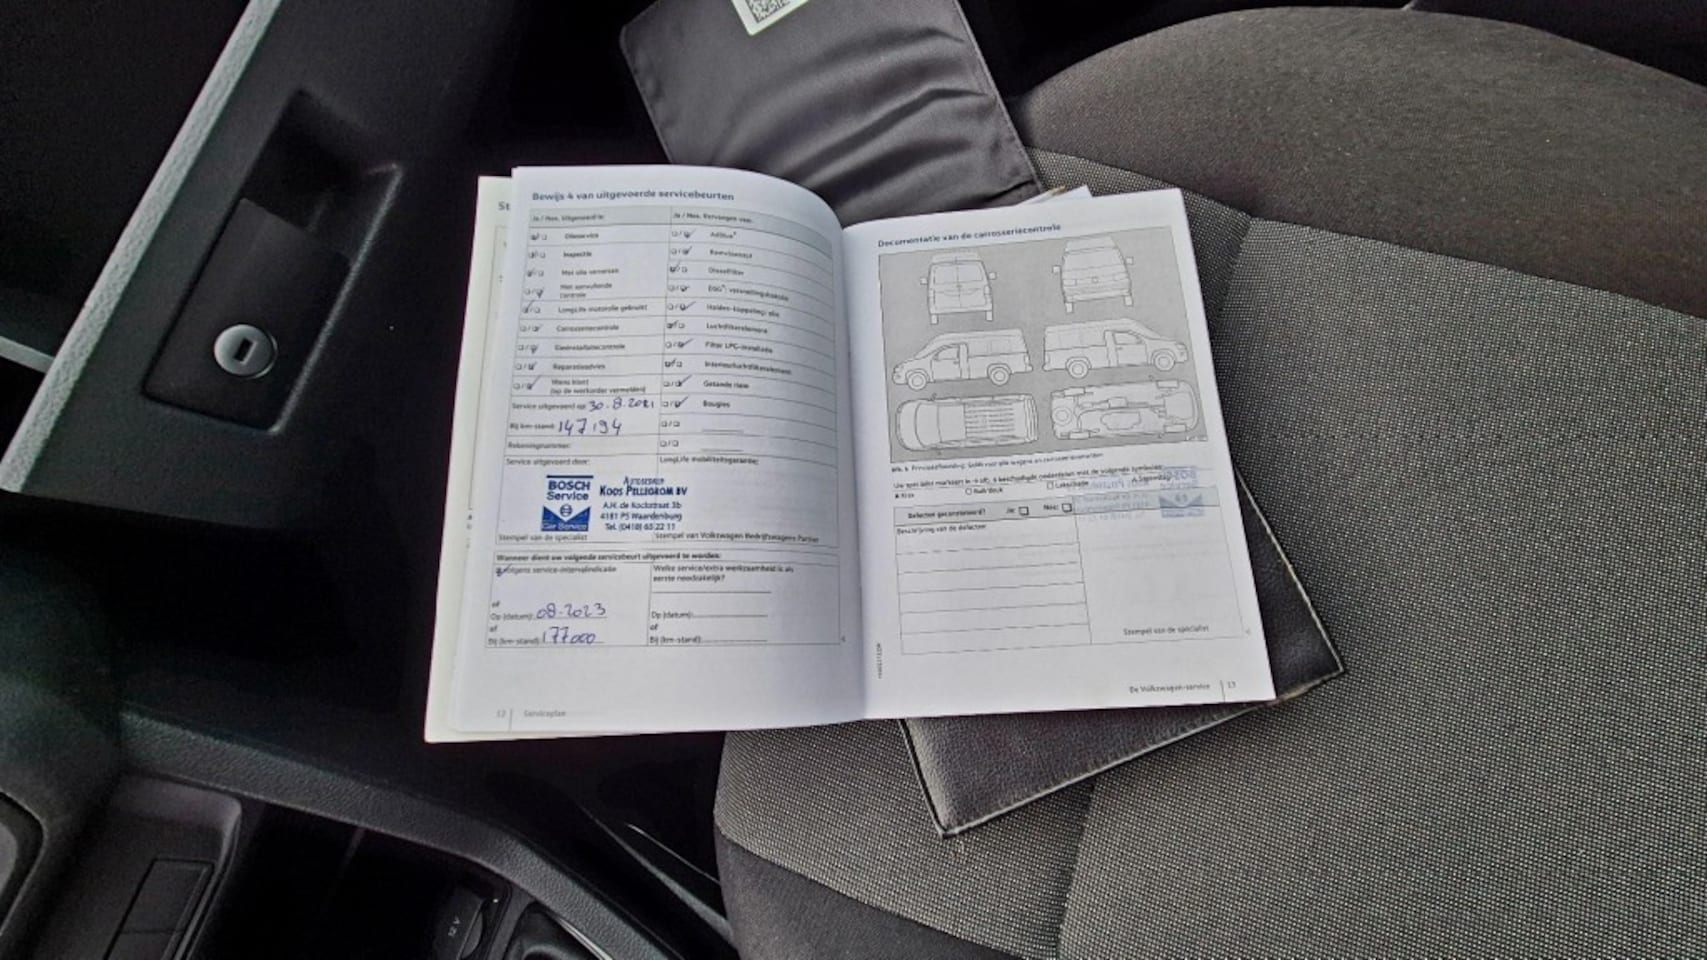 Bewijs 4 van uitgevoerde servicebeurten
Ja / Nee, Uitgevoerd is:
Olieservice
Inspectie
Met olie verversen
Met aanvullende
controle
LongLife motorolie gebruikt
Carrosseriecontrole
Gasinstallatiecontrole
Reparatieadvies
Wens klant
(op de werkorder vermelden)
Service uitgevoerd op: 30-8-2021
Bij km-stand: 147194
Rekeningnummer:
Service uitgevoerd door:
BOSCH
Service
Car Service
AUTOBEDRIJF
KOOS PELLIGROM BV
A.H. de Kockstraat 3b
4181 PS Waardenburg
Tel. (0418) 65 22 11
Stempel van de specialist
Ja / Nee, Vervangen van:
AdBlue®
Remvloeistof
Dieselfilter
DSG®: versnellingsbakolie
Haldex-koppeling: olie
Luchtfilterelement
Filter LPG-installatie
Interieurluchtfilterelement
Getande riem
Bougies
LongLife mobiliteitsgarantie:
Stempel van Volkswagen Bedrijfswagens Partner
Wanneer dient uw volgende servicebeurt uitgevoerd te worden:
volgens service-intervalindicatie
of
Op (datum): 08-2023
of
Bij (km-stand): 177000
Welke service/extra werkzaamheid is als
eerste noodzakelijk?
Op (datum):
of
Bij (km-stand):
12 | Serviceplan
Documentatie van de carrosseriecontrole
Afb. 5 Principeafbeelding: Geldt voor alle wagens en carrosserievarianten
Kras
Ruk/deuk
Lakschade
Steenslag
Defecten geconstateerd? Ja: Nee:
Beschrijving van de defecten:
Stempel van de specialist
De Volkswagen-service | 13